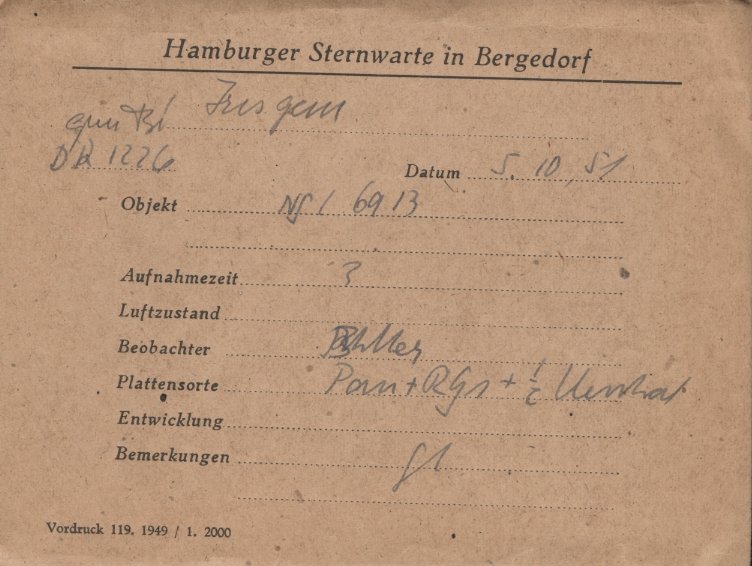 Hamburger Sternwarte in Bergedorf
DR 1226
Datum 5. 10. 51
Objekt 6913
Aufnahmezeit 3
Luftzustand
Beobachter
Plattensorte Pan + RG1 +
Entwicklung
Bemerkungen
Vordruck 119. 1949 / 1. 2000